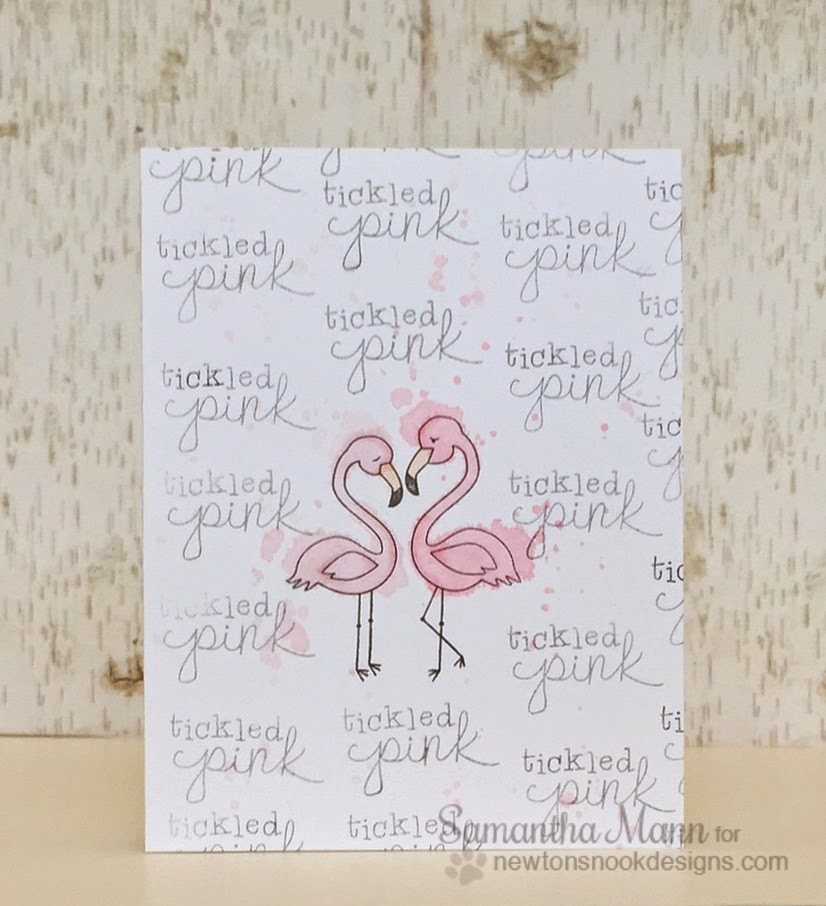 pink
pink
tickled
pink
tickled
pink
tickled
pink
tickled
pink
tickled
pink
tickled
pink
tickled
pink
tickled
pink
tickled
pink
tickled
pink
tickled
pink
tickled
pink
tickled
pink
tickled
pink
tickled
tickled
Samantha Mann for
newtonsnookdesigns.com